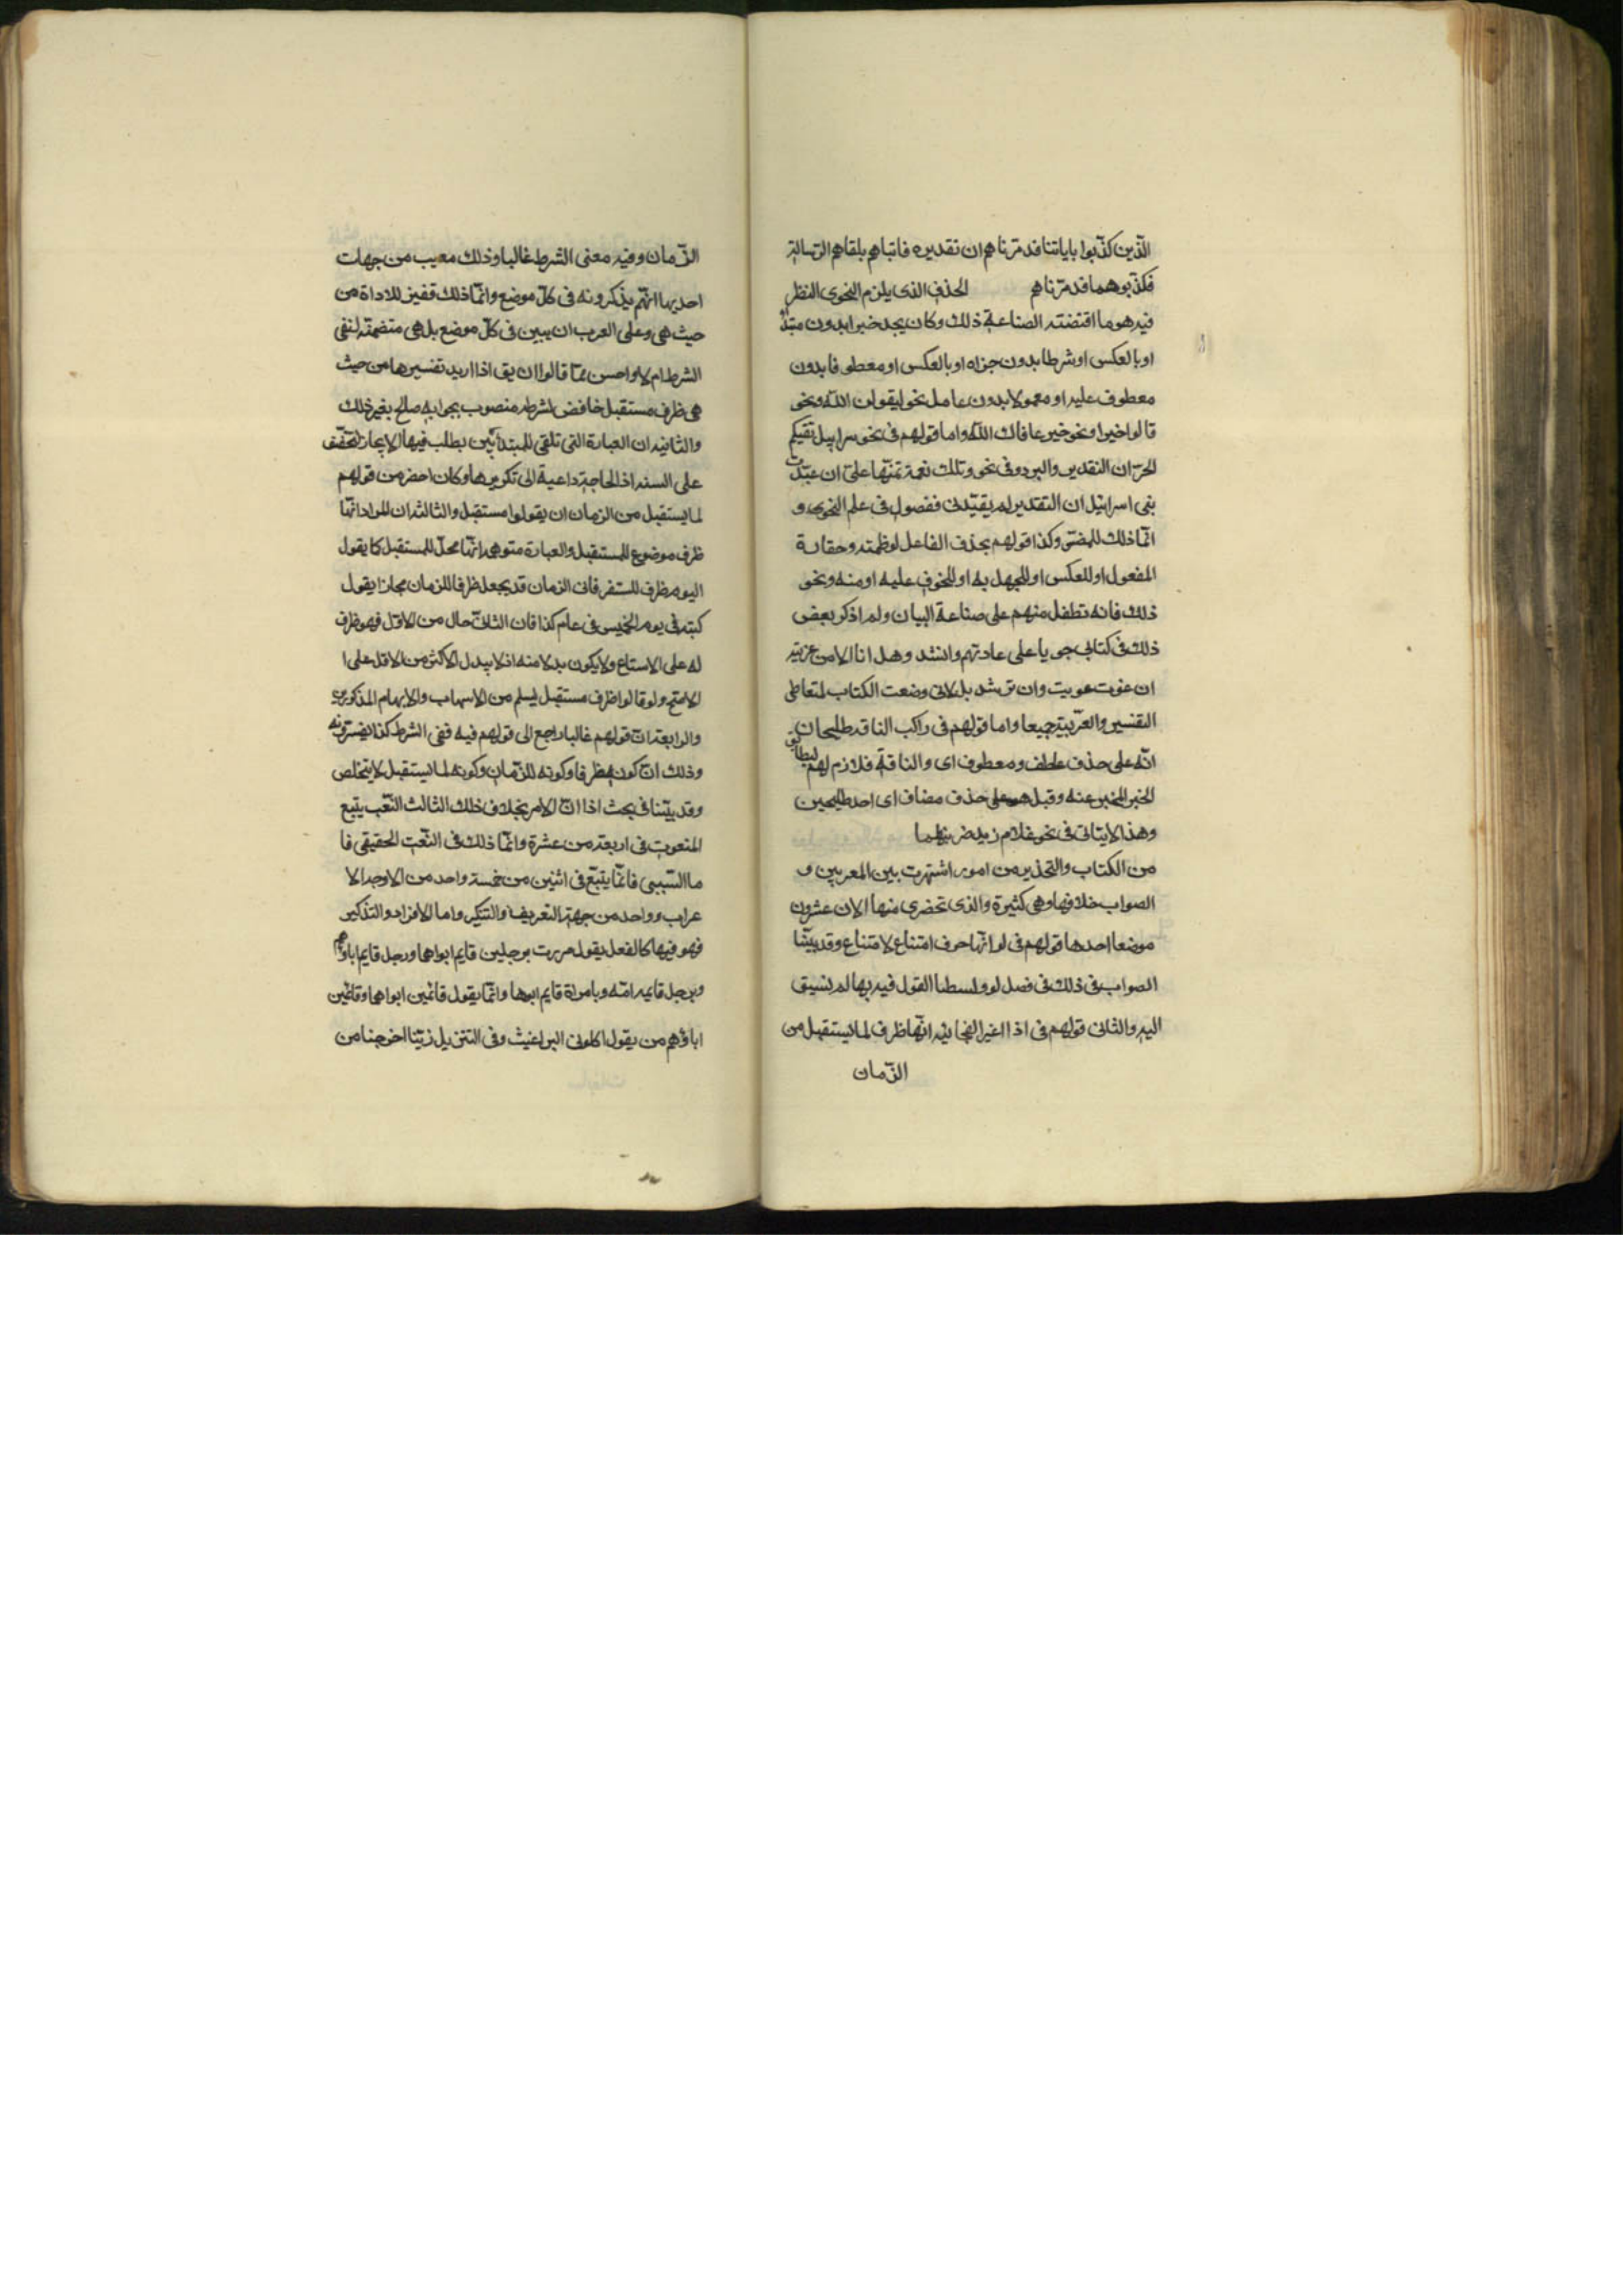 الّذين كذّبوا باياتنا فدمّرناهم ان تقديره فاتياهم بلغاهم الرّسالة
فكذّبوهما فدمّرناهم الحذف الذى يلزم النحوى النظر
فيه هو ما اقتضته الصناعة ذلك وكان يجد خبرا بدون مبتدأ
او بالعكس او شرطا بدون جزاه او بالعكس او معطوفا بدون
معطوف عليه او معمولا بدون عامل نحو ليقولن اللّه ونحو
قالوا خيرا ونحو خير عافاك اللّه واما قولهم فى نحو سرابيل تقيكم
الحرّ ان التقدير والبرد وفى نحو وتلك نعمة تمنّها علىّ ان عبّدت
بنى اسرائيل ان التقدير لم يقيّدنى ففصول فى علم النحو و
انّما ذلك للمفسّر وكذا قولهم بحذف الفاعل لوظمته وحقارة
المفعول او للعكس او للجهل به او للخوف عليه او منه ونحو
ذلك فانه تطفل منهم على صناعة البيان ولم اذكر بعض
ذلك فى كتابى جريا على عادتهم وانشد وهل انا الا من غزية
ان غوت غويت وان ترشد بل لانى وضعت الكتاب لمتعاطى
التفسير والعربية جميعا واما قولهم فى راكب الناقه طليحان
انّه على حذف عاطف ومعطوف اى والناقة فلازم لهم ليطابق
الخبر المخبر عنه وقيل هو على حذف مضاف اى احد طليحين
وهذا لا يتاتى فى نحو غلام زيد ضربتهما
من الكتاب والتحذير من امور اشتهرت بين المعربين و
الصواب خلافها وهى كثيرة والذى تحضرى منها الان عشرون
موضعا احدها قولهم فى لو انّها حرف امتناع لامتناع وقد بيّنّا
الصواب فى ذلك فى فصل لو وبسطنا القول فيه بما لم نسبق
اليه والثانى قولهم فى اذا غير الفجائية انّها ظرف لما يستقبل من
الزّمان
الزّمان وفيه معنى الشرط غالبا وذلك معيب من جهات
احديها انّهم يذكرونه فى كلّ موضع وانّما ذلك تفسير للاداة من
حيث هى وعلى العرب ان يبين فى كلّ موضع بل هى متضمنة لمعنى
الشرط ام لا واحسن ممّا قالوا ان يق اذا اريد تفسيرها من حيث
هى ظرف مستقبل خافض لشرطه منصوب بجوابه صالح بغير ذلك
والثانيه ان العبارة التى تلقى للمبتدأين يطلب فيها الايجاز لتخفّف
على السنه اذ الحاجة داعية الى تكريرها وكان اخصر من قولهم
لما يستقبل من الزمان ان يقولوا مستقبل والثالثه ان المراد انّها
ظرف موضوع للمستقبل والعبارة متوهمه انّها محلّ للمستقبل كما يقول
اليوم ظرف للسفر فان الزمان قد يجعل ظرفا للزمان مجازا يقول
كتبته فى يوم الخميس فى عام كذا فان الثانى حال من الاوّل فهو ظرف
له على الاستاع ولا يكون بدلا منه اذ لا يبدل الاكثر من الاقل على ا
لاصح ولو قالوا ظرف مستقبل ليسلم من الاسهاب والابهام المذكورين
والرابعة ان قولهم غالبا راجع الى قولهم فيه ففى الشرط كذا يفسّرونه
وذلك انّ كونه ظرفا وكونه للزّمان وكونه لما يستقبل لا يتخلص
وقد بيّنّا فى بحث اذا انّ الامر بخلاف ذلك الثالث النّعت يتبع
المنعوت فى اربعة من عشرة وانّما ذلك فى النّعت الحقيقى فا
ما السّببى فانّما يتبع فى اثنين من خمسة واحد من الاوجد الا
عراب وواحد من جهة التعريف والتنكير واما الافراد والتذكير
فهو فيها كالفعل يقول مررت برجلين قايم ابواهما ورجل قايم اباؤهم
وبرجل قايمه امّه وبامراة قايم ابوها وانّما يقول قائمين ابواهما وقائمين
اباؤهم من يقول اكلونى البراغيث وفى التنزيل ربّنا اخرجنا من